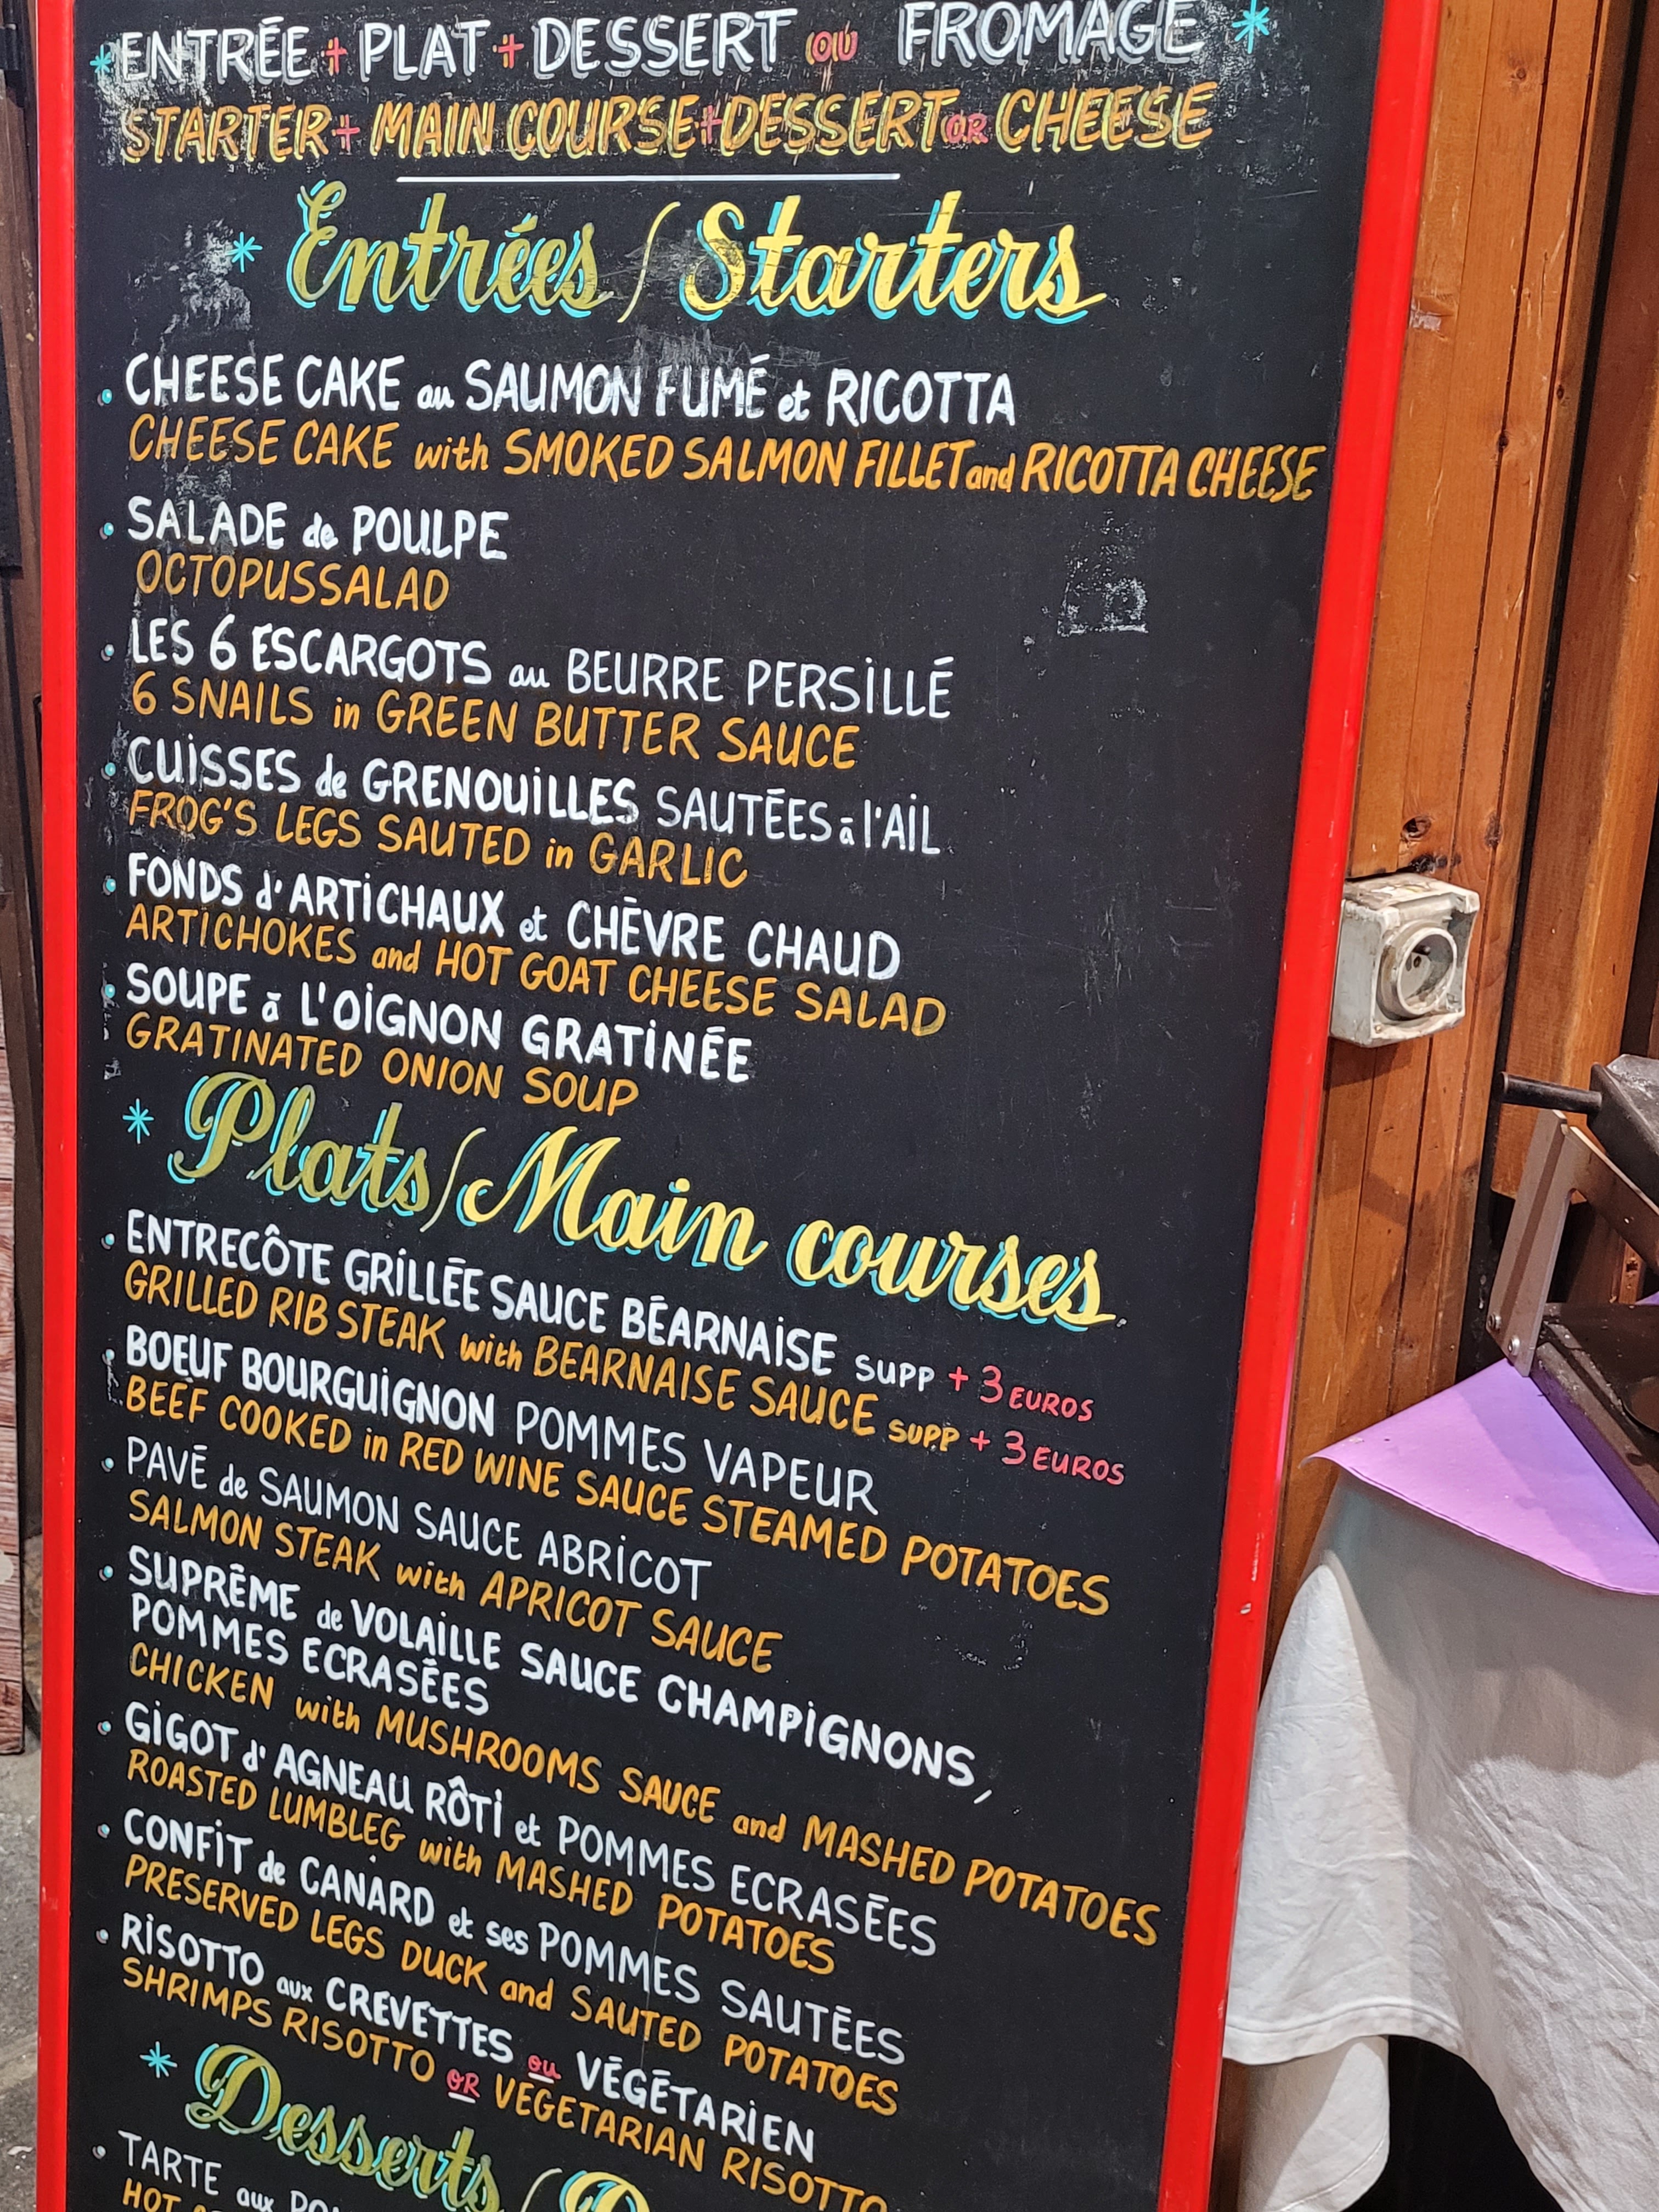 * ENTRÉE + PLAT + DESSERT OU FROMAGE *
STARTER + MAIN COURSE + DESSERT OR CHEESE
* Entrées / Starters
• CHEESE CAKE au SAUMON FUMÉ et RICOTTA
CHEESE CAKE with SMOKED SALMON FILLET and RICOTTA CHEESE
• SALADE de POULPE
OCTOPUSSALAD
• LES 6 ESCARGOTS au BEURRE PERSILLÉ
6 SNAILS in GREEN BUTTER SAUCE
• CUISSES de GRENOUILLES SAUTÉES à l'AIL
FROG'S LEGS SAUTED in GARLIC
• FONDS d'ARTICHAUX et CHÈVRE CHAUD
ARTICHOKES and HOT GOAT CHEESE SALAD
• SOUPE à L'OIGNON GRATINÉE
GRATINATED ONION SOUP
* Plats / Main courses
• ENTRECÔTE GRILLÉE SAUCE BÉARNAISE SUPP + 3 EUROS
GRILLED RIB STEAK with BEARNAISE SAUCE SUPP + 3 EUROS
• BOEUF BOURGUIGNON POMMES VAPEUR
BEEF COOKED in RED WINE SAUCE STEAMED POTATOES
• PAVÉ de SAUMON SAUCE ABRICOT
SALMON STEAK with APRICOT SAUCE
• SUPRÊME de VOLAILLE SAUCE CHAMPIGNONS,
POMMES ECRASÉES
CHICKEN with MUSHROOMS SAUCE and MASHED POTATOES
• GIGOT d'AGNEAU RÔTI et POMMES ECRASÉES
ROASTED LUMBLEG with MASHED POTATOES
• CONFIT de CANARD et ses POMMES SAUTÉES
PRESERVED LEGS DUCK and SAUTED POTATOES
• RISOTTO aux CREVETTES ou VÉGÉTARIEN
SHRIMPS RISOTTO OR VEGETARIAN RISOTTO
* Desserts /
• TARTE aux
HOT